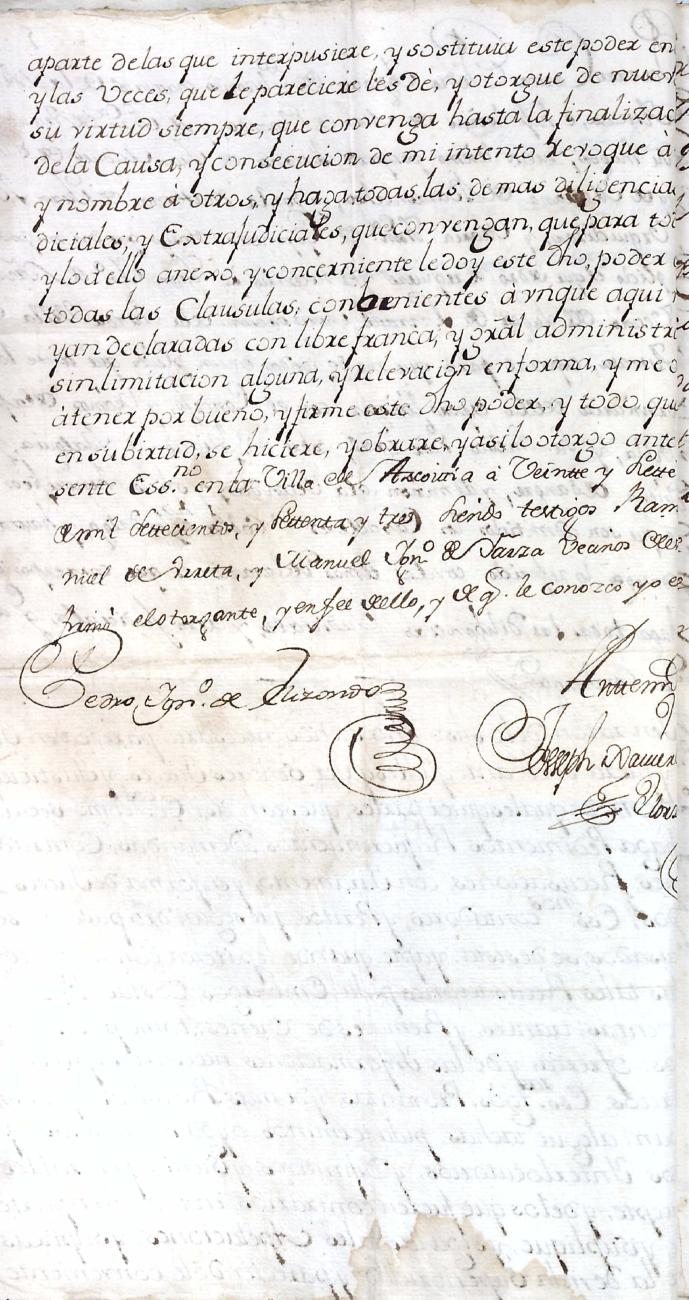 aparte delas que interpusiere, y sostituia este poder en
y las Veces, que le pareciere les dè, y otorgue de nuev
su virtud siempre, que convenga hasta la finalizac
de la Causa, y consecucion de mi intento revoque à
y nombre à otros, y haga todas las, demas diligencia
diciales, y Extrajudiciales, que convengan, que para to
y lo à ello anexo, y concerniente le doy este dho, poder
todas las Clausulas, conbenientes à vnque aqui
yan declaradas con libre franca, y grãl administr
sin limitacion alguna, y relevación en forma, y me o
à tener por bueno, y firme este dho poder, y todo qu
en su birtud, se hiciere, y obrare, y àsi lo otorgo ante
sente Ess.no en la Villa de Ascoitia à Veintte y siette
de mil settecientos, y settenta y tres siendo testigos Ram
niel de Urreta, y Manuel Ygn.o de Vecinos de
firmò el otorgante, y en fee de ello, y de q.e le conozco yo e
Pedro Ygn.o de Elizondo
Anttemi
Joseph Xavier